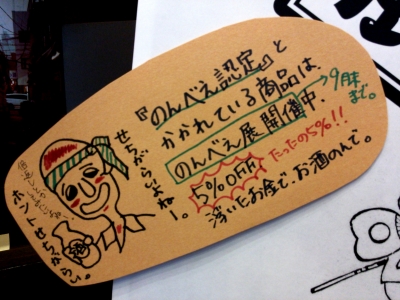 『のんべえ認定』と
かかれている商品は、
のんべえ展開催中。→9月末まで。
5%OFF たったの5%!!
浮いたお金で、お酒のんで。
せちがらいよねー。
ホントせちがらい。